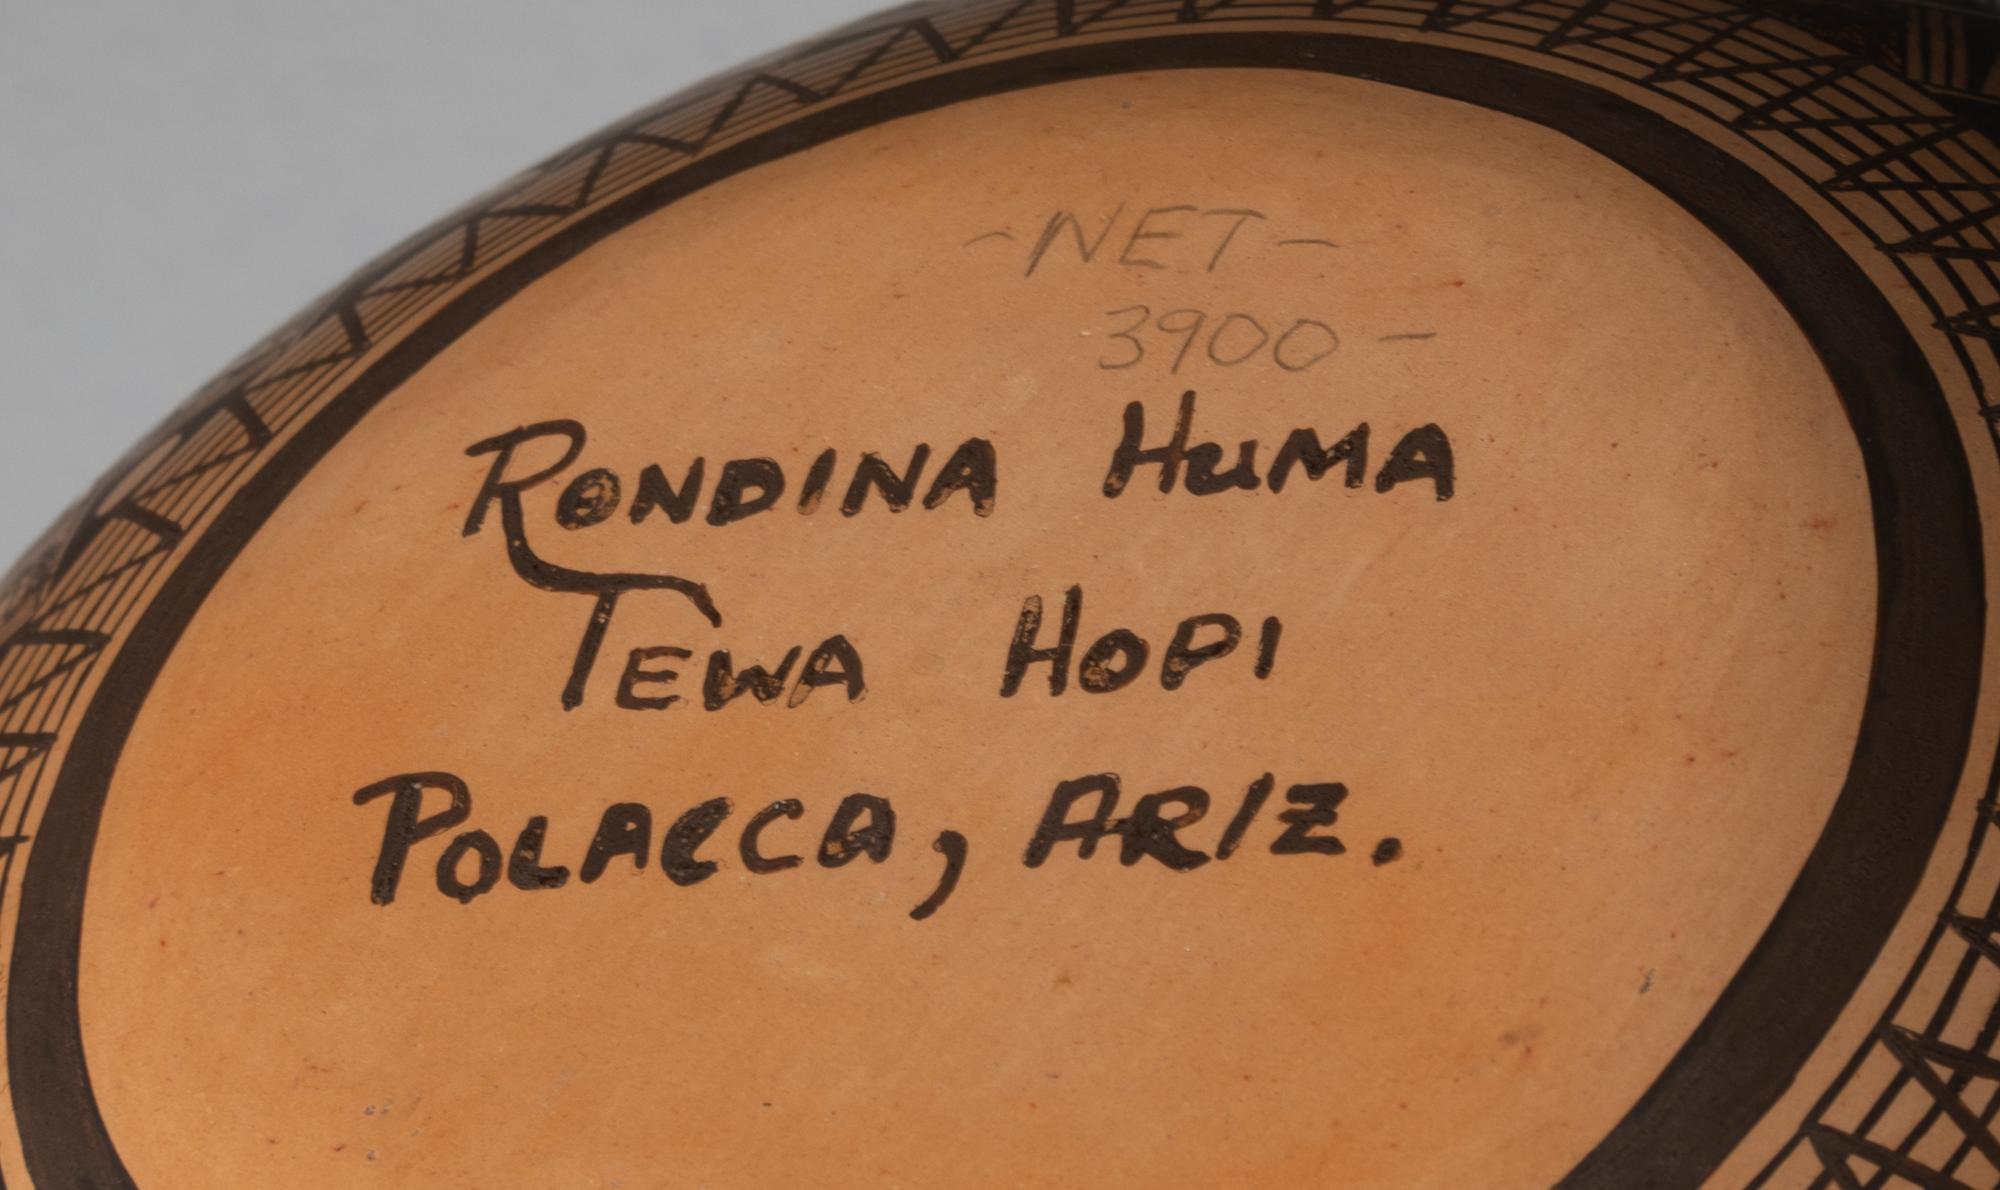 -NET-
3900-
RONDINA HUMA
TEWA HOPI
POLACCA, ARIZ.